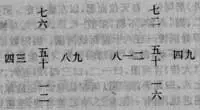 七六
四三 五十 八九
一二
七二
八一二 五十 四九
一六